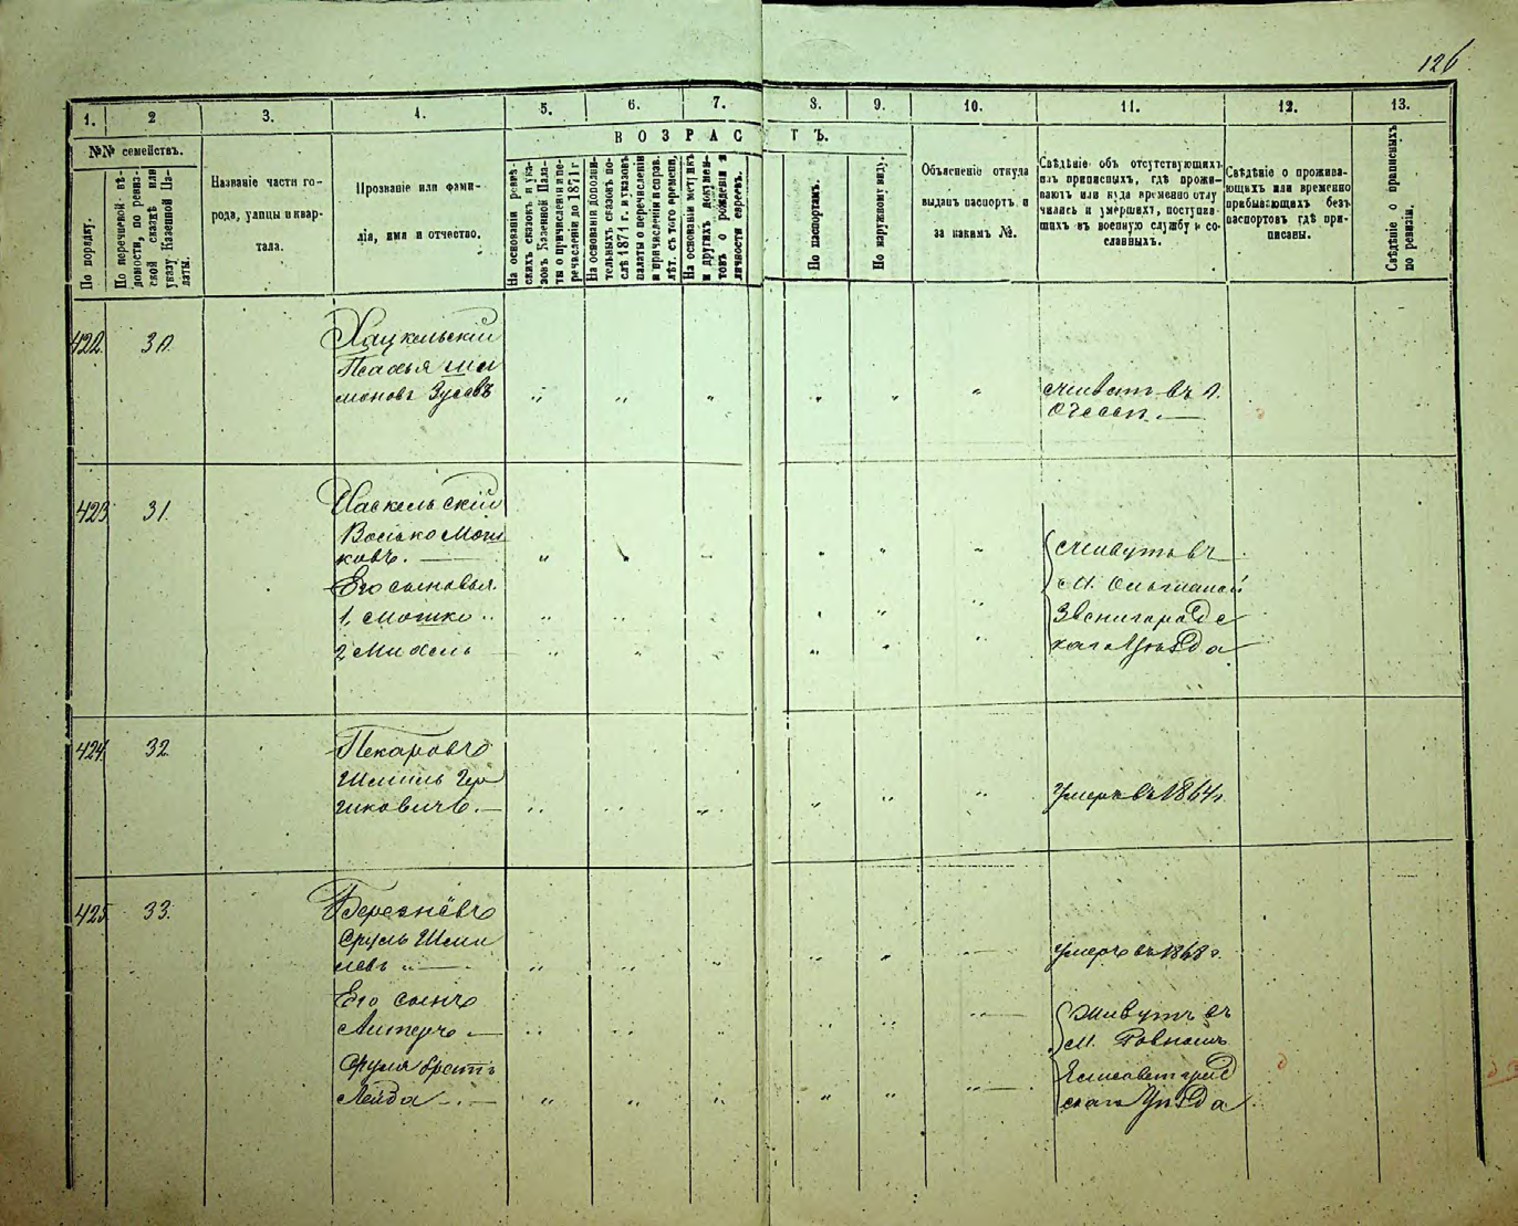 126
1. 2 3. 4. 5. 6. 7. 8. 9. 10. 11. 12. 13.
ВОЗРАСТЪ.
№№ семействъ.
По порядку.
По перечневой вѣ-
домости, по ревиз-
ской сказкѣ или
указу Казенной Па-
латы.
Названіе части го-
рода, улицы и квар-
тала.
Прозваніе или фами-
лія, имя и отчество.
На основаніи ревиз-
скихъ сказокъ и ука-
зовъ Казенной Пала-
ты о причисленіи и пе-
речисленіи до 1871 г
На основаніи дополни-
тельныхъ сказокъ по-
слѣ 1871 г. и указовъ
палаты о перечисленіи
и причисленіи и справ.
лѣт. съ того времени,
На основаніи метрикъ
и другихъ докумен-
товъ о рожденіи и
личности евреевъ.
По паспортамъ.
По наружному виду.
Объясненіе откуда
выданъ паспортъ и
за какимъ №.
Свѣдѣніе объ отсутствующихъ
изъ приписныхъ, гдѣ прожи-
ваютъ или куда временно отлу
чились и умершихъ, поступив-
шихъ въ военную службу и со-
сланныхъ.
Свѣдѣніе о прожива-
ющихъ или временно
прибывающихъ безъ
паспортовъ гдѣ при-
писаны.
Свѣдѣніе о приписныхъ
по ревизіи.
422. 30.
Хацкельскій
моновъ Зусевъ
живетъ въ г.
Одессѣ. —
423 31.
Хаскельскій
Волько Мош
ковъ. —
Его сыновья.
1. Мошко
2 Михель
Живутъ въ
м. Ольшаной
Звенигородс
каго Уѣзда
424. 32
Пекаровъ
Шмиль Гер
шковичъ. —
Умеръ въ 1864 г.
425. 33.
Березнёвъ
Сруль Шми
левъ —
Умеръ въ 1868 г.
Его сынъ
Литеръ —
Сруля братъ
Лейба —
Живутъ въ
м. Ровномъ
Елисаветград
скаго Уѣзда